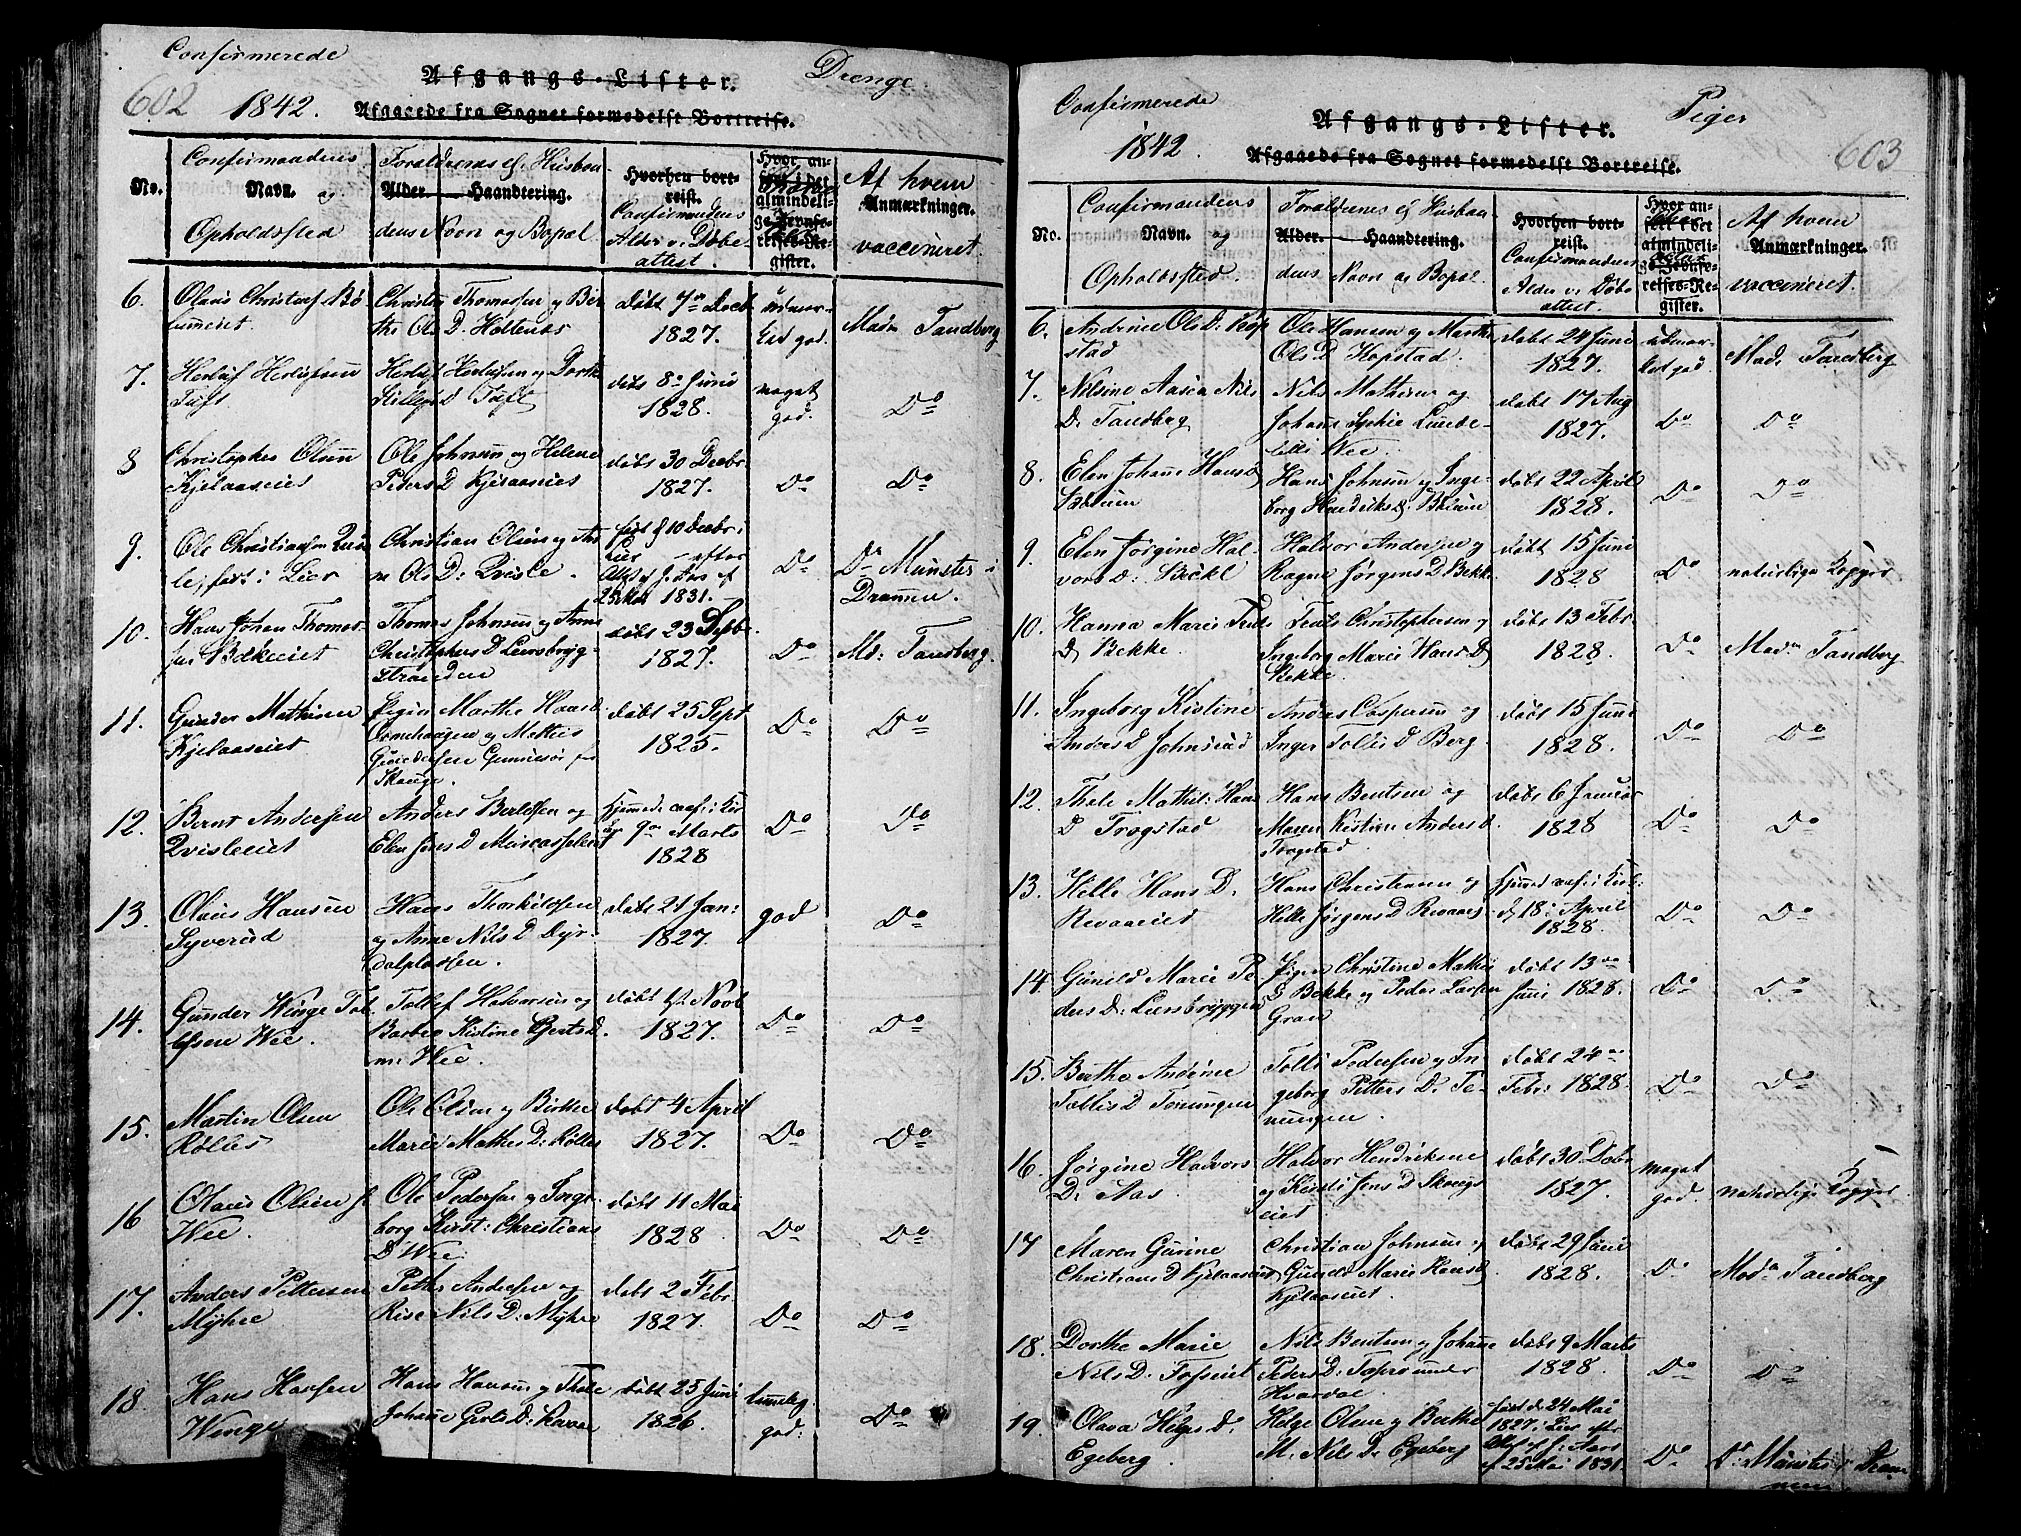 Confirmerede
Afgangs-Lister.
Drenge
602
1842.
Afgaaede fra Sognet formedelst Bortreise.
No.
Confirmandens
Navn.
og
Opholdssted
Foraldrenes el. Husbon-
Alder Haandtering.
dens Navn og Bopæl
Hvorhen bort-
reist.
Confirmandens
Alder v. Døbe-
attest.
Hvor an-
ført i det
almindeli-
ge Jevnfø-
relses-Re-
gister.
Af hvem
Anmærkninger.
vaccineret
6.
Olaus Christens.
Christen Thomassen og Ber-
the Ols D. Holtenæs
døbt 7de Decb
1827.
udmær-
ket god.
Madm Tandberg
7.
Herlof Herlofsen
Tuft
Herlof Herlofsen og Dorthe
D Tuft
døbt 8de Juni
1828.
meget
god.
Do
8
Christopher Olsen
Kjelaaseiet
Ole Johnsen og Helene
Peders D Kjelaaseiet
døbt 30 Decbr
1827.
Do
Do
9.
Ole Christiansen
født i Lier
Christian Olsen og
Ols D. Qvisle.
født d 10 Decbr i
Lier – efter
Attest af J. Aas af
25 Mai 1831.
Do
Dr Münster i
Drammen.
10.
Hans Johan Thomes-
sen Bekkeiet
Thomas Johnsen og Anne
Christophers D Liersbryg-
Stranden
døbt 23 Septbr.
1827.
Do
Md: Tandberg.
11.
Gunder Mathisen
Kjelaaseiet
Pigen Marthe Hans D
Ornehaugen og Mathis
Gundersen
Skauge.
døbt 25 Sept
1825.
Do
Do
12.
Bernt Andersen
Qvisleeiet
Anders Berthsen og
Elen Jens D
Hjemmedøbt i Kir
9de Marts
1828
Do
Do
13.
Olaus Hansen
Syverud
Hans Thorkildsen
og Anne Nils D Dyr-
dalplassen.
døbt 21 Jan:
1827.
god
Do
14.
Gunder Winge Tol-
lefsen Wee.
Tollef Halvorsen og
Barbra Kistine Gjerts D.
Wee.
døbt 1st Novb
1827.
Do
Do
15.
Martin Olsen
Rølles
Ole Olsen og Birthe
Marie Mathis D: Rølles
døbt 4 April
1827.
Do
Do
16
Olaus Olsen
Wee.
Ole Pedersen og Inge-
borg Kirst: Christians
D Wee.
døbt 11 Mai
1828
Do
Do
17.
Anders Pettersen
Myhre
Petter Andersen og
Rise Nils D: Myhre
døbt 2 Febr.
1827.
Do
Do
18.
Hans Hansen
Winge
Hans Hansen og Thale
Johanne Gjerts D.
døbt 25 Juni
1826.
temmelig
god.
Do
Confirmerede
1842.
Afgangs-Lister.
Afgaaede fra Sognet formedelst Bortreise.
Piger
603
No.
Confirmandens
Navn.
og
Opholdssted
Foraldrenes el Husbon-
Alder. Haandtering.
dens Navn og Bopæl
Hvorhen bort-
reist.
Confirmandens
Alder v. Døbe-
attest
Hvor an-
ført i det
almindeli-
ge Jevnfø-
relses-Re-
gister.
Af hvem
Anmærkninger.
vaccineret.
6.
Andrine Ols D. Kop-
stad
Ole Hansen og Marthe
Ols D Kopstad.
døbt 24 Juni
1827.
udmær-
ket god.
Mad. Tandberg
7.
Nilsine Aasia Nils
D. Tandberg
Nils Mathisen og
Johane Sophie Lunde-
Wee.
døbt 17 Aug
1827.
Do
Do
8.
Elen Johanne Hans D
Hans Johnsen og Inge-
borg Hendriks D.
døbt 22 April
1828.
Do
Do
9.
Elen Jørgine Hal-
vors D.
Halvor Andersen og
Ragne Jørgens D Bekke
døbt 15 Juni
1828
Do
naturlige Kopper
10.
Hanna Marie
D. Bekke.
Christophersen og
Ingeborg Marie Hans D
Bekke
døbt 13 Febr
1828.
Do
Madm Tandberg
11.
Ingeborg Kistine
Anders D Johnsrud
Anders Caspersen og
Inger Tollis D Berg.
døbt 15 Juni
1828.
Do
Do
12.
Thale Mathil: Hans
D Trogstad
Hans Bentsen og
Maren Kistine Anders D
Trogstad
døbt 6 Januar
1828
Do
Do
13.
Helle Hans D.
Revaaeiet
Hans Christiansen og
Helle Jørgens D Revaaes
Hjemmedøbt i Kir:
d 18 April
1828.
Do
Do
14.
Gunild Marie Pe-
ders D: Liersbryggen
Pigen Christine Mathis
D Bekke og Peder Larsen
Gran
døbt 13de
Juni 1828.
Do
Do
15.
Berthe Andrine
Tollis D Torungen
Tollis Pedersen og In-
geborg Petters D. Te-
nungen.
døbt 24de
Febr: 1828.
Do
Do
16.
Jørgine Halvors
D. Aas
Halvor Hendriksen
og Kirsti Jens D Skougs
eiet
døbt 30 Decbr
1827.
meget
god
naturlige Kopper
17
Maren Gurine
Christians D Kjelaaseiet
Christian Johnsen og
Gunild Marie Hans D
Kjelaaseiet.
døbt 29 Juni
1828.
Do
Madm Tandberg
18.
Dorthe Marie
Nils D. Fosseiet
Nils Bentsen og Johanne
Peders D. Fosse under
døbt 9 Marts
1828.
Do
Do
19.
Olava Helges D.
Egeberg
Helge Olsen og Berthe
M. Nils D. Egeberg
født d. 24 Mai
1827. Lier efter
Attest af J. Aars
af 25 Mai 1831.
Do
Dr Münster i Dram-
men